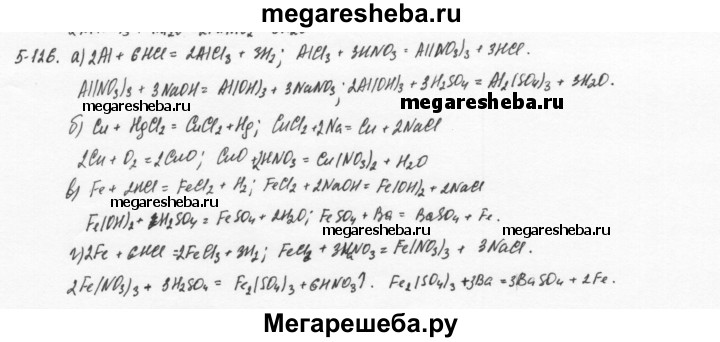 megaresheba.ru
5-126. а) 2Al + 6HCl = 2AlCl3 + 3H2; AlCl3 + 3HNO3 = Al(NO3)3 + 3HCl.
Al(NO3)3 + 3NaOH = Al(OH)3 + 3NaNO3; 2Al(OH)3 + 3H2SO4 = Al2(SO4)3 + 3H2O.
megaresheba.ru megaresheba.ru
б) Cu + HgCl2 = CuCl2 + Hg; CuCl2 + 2Na = Cu + 2NaCl
2Cu + O2 = 2CuO; CuO + 2HNO3 = Cu(NO3)2 + H2O
в) Fe + 2HCl = FeCl2 + H2; FeCl2 + 2NaOH = Fe(OH)2 + 2NaCl
Fe(OH)2 + H2SO4 = FeSO4 + 2H2O; FeSO4 + Ba = BaSO4 + Fe.
megaresheba.ru megaresheba.ru
г) 2Fe + 6HCl = 2FeCl3 + 3H2; FeCl3 + 3HNO3 = Fe(NO3)3 + 3NaCl.
2Fe(NO3)3 + 3H2SO4 = Fe2(SO4)3 + 6HNO3↑. Fe2(SO4)3 + 3Ba = 3BaSO4 + 2Fe.
Мегарешеба.ру